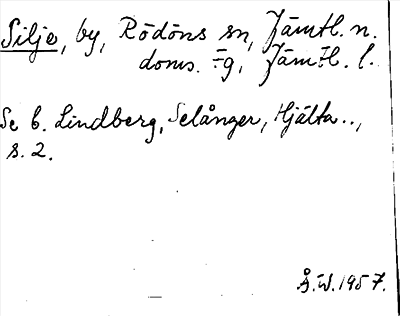 Silje, by, Rödöns sn, Jämtl. n.
doms. -g, Jämtl. l.
Se C. Lindberg, Selånger, Hjälta..,
s. 2.
Å.W. 1957.